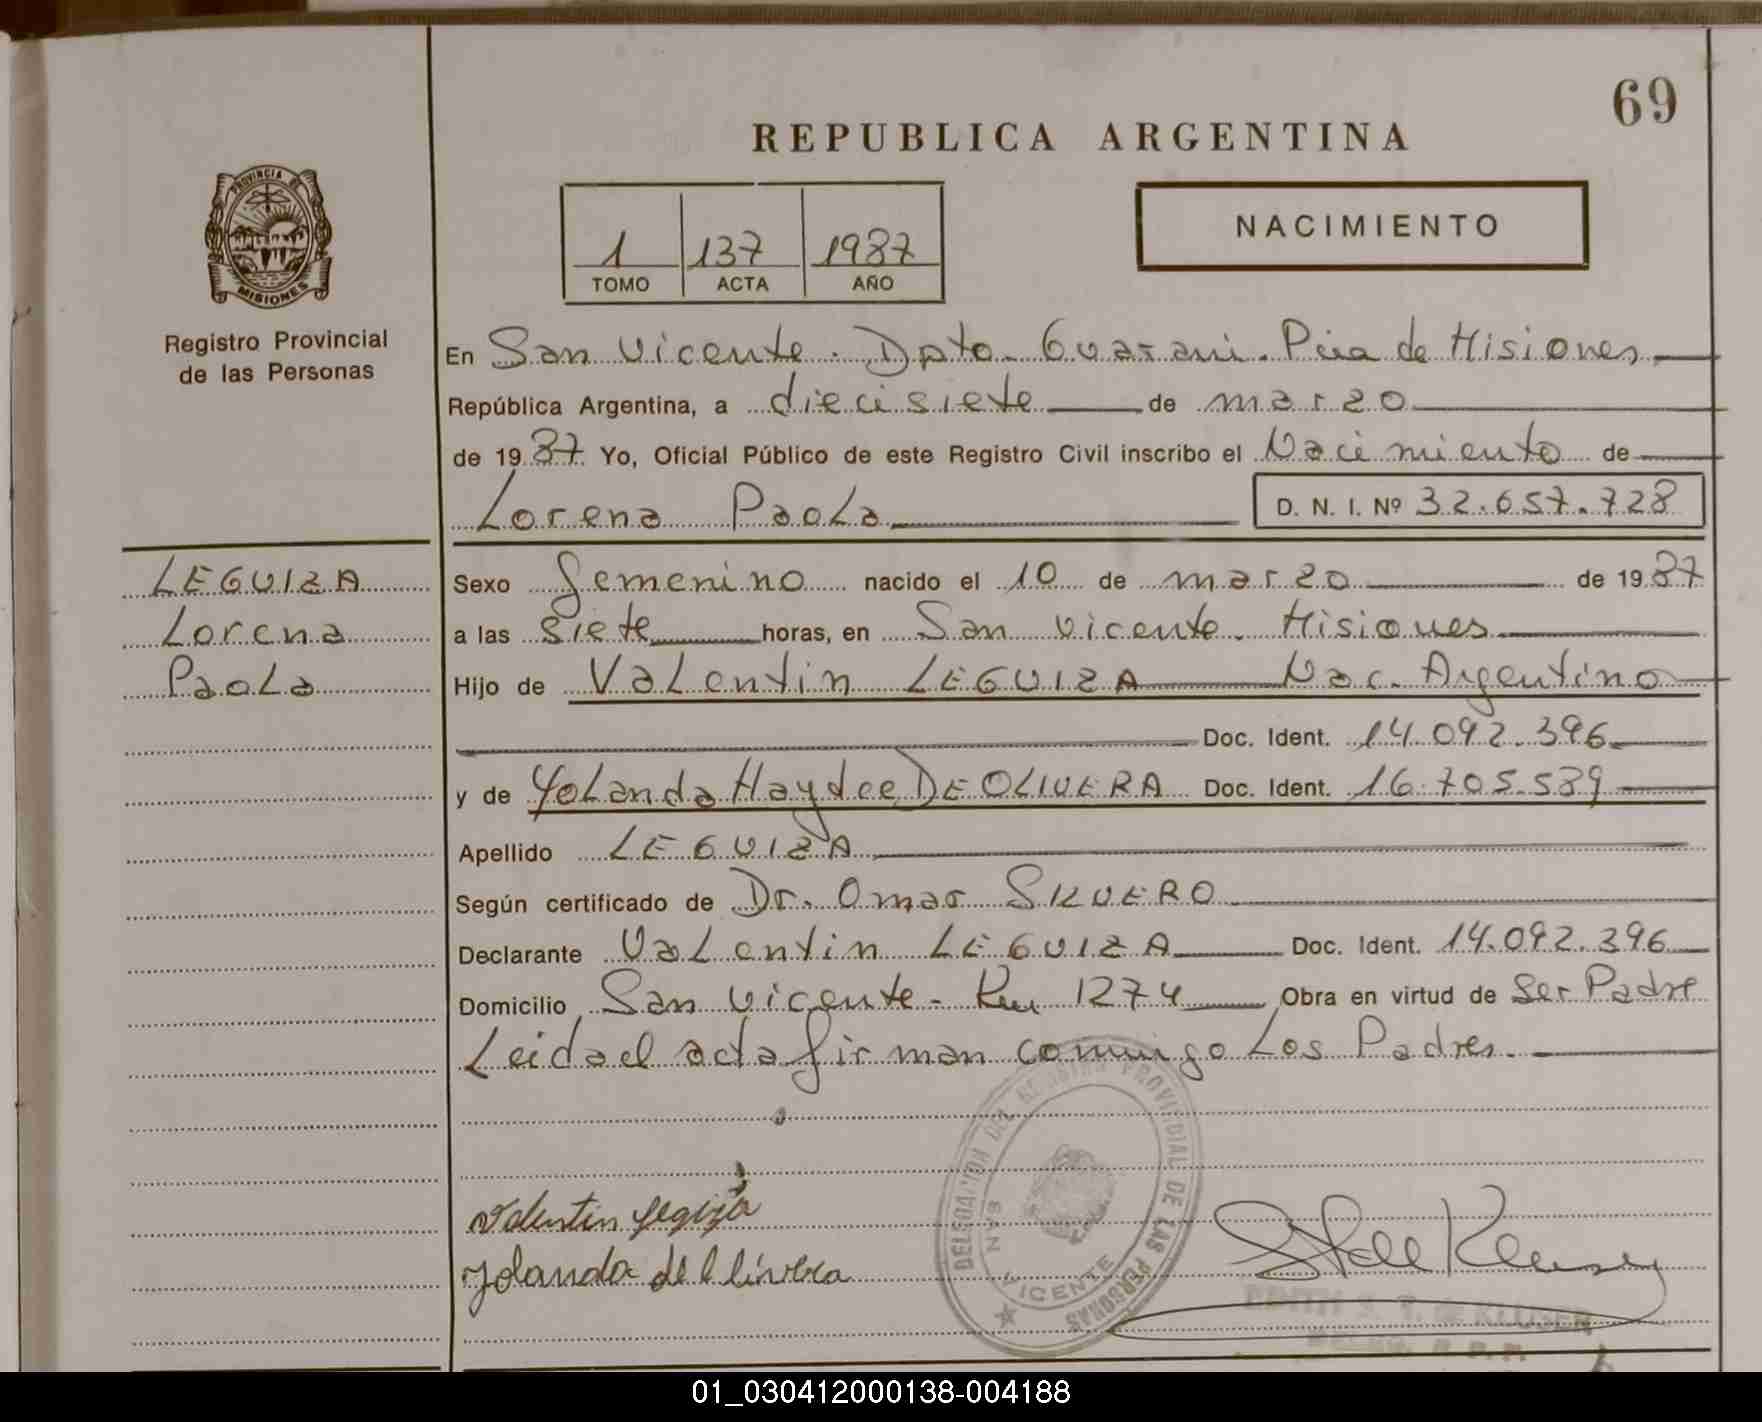 69
REPUBLICA ARGENTINA
PROVINCIA DE
MISIONES
1 137 1987
TOMO ACTA AÑO
NACIMIENTO
Registro Provincial
de las Personas
En San Vicente. Dpto. Guarani. Pcia de Misiones
República Argentina, a diecisiete de marzo
de 1987 Yo, Oficial Público de este Registro Civil inscribo el Nacimiento de
Lorena Paola D. N. I. Nº 32.657.728
LEGUIZA
Lorena
Paola
Sexo femenino nacido el 10 de marzo de 1987
a las siete horas, en San Vicente. Misiones
Hijo de Valentin LEGUIZA Nac. Argentino
Doc. Ident. 14.092.396
y de Yolanda Haydee DE OLIVERA Doc. Ident. 16.705.589
Apellido LEGUIZA
Según certificado de Dr. Omar SILVERO
Declarante Valentin LEGUIZA Doc. Ident. 14.092.396
Domicilio San Vicente - Km 1274 Obra en virtud de Ser Padre
Leida el acta firman conmigo Los Padres.
DELEGACION DEL REGISTRO PROVINCIAL DE LAS PERSONAS
VICENTE
Valentin Legiza
Yolanda de l livera
EDITH S. T. de KLUSER
01_030412000138-004188